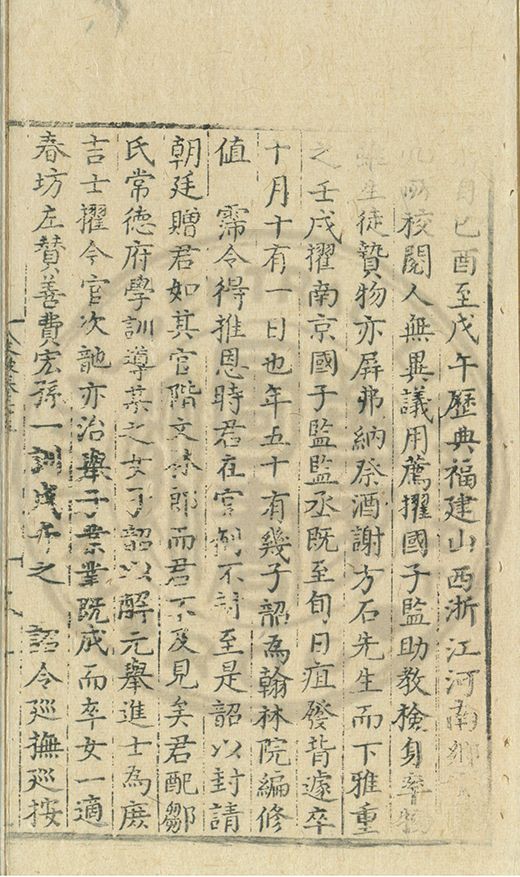 自己酉至戊午歷典福建山西浙江河南鄉
所校閱人無異議用薦擢國子監助教檢身率物
生徒贄物亦屏弗納祭酒謝方石先生而下雅重
之壬戌擢南京國子監監丞既至旬日疽發背遽卒
十月十有一日也年五十有幾子韶為翰林院編修
值 霈令得推恩時君在官例不封至是韶以封請
朝廷贈君如其官階文林郎而君不及見矣君配鄒
氏常德府學訓導某之女子韶以解元舉進士為庶
吉士擢今官次韺亦治舉子業業既成而卒女一適
春坊左贊善費宏孫一 之 詔令廵撫廵按